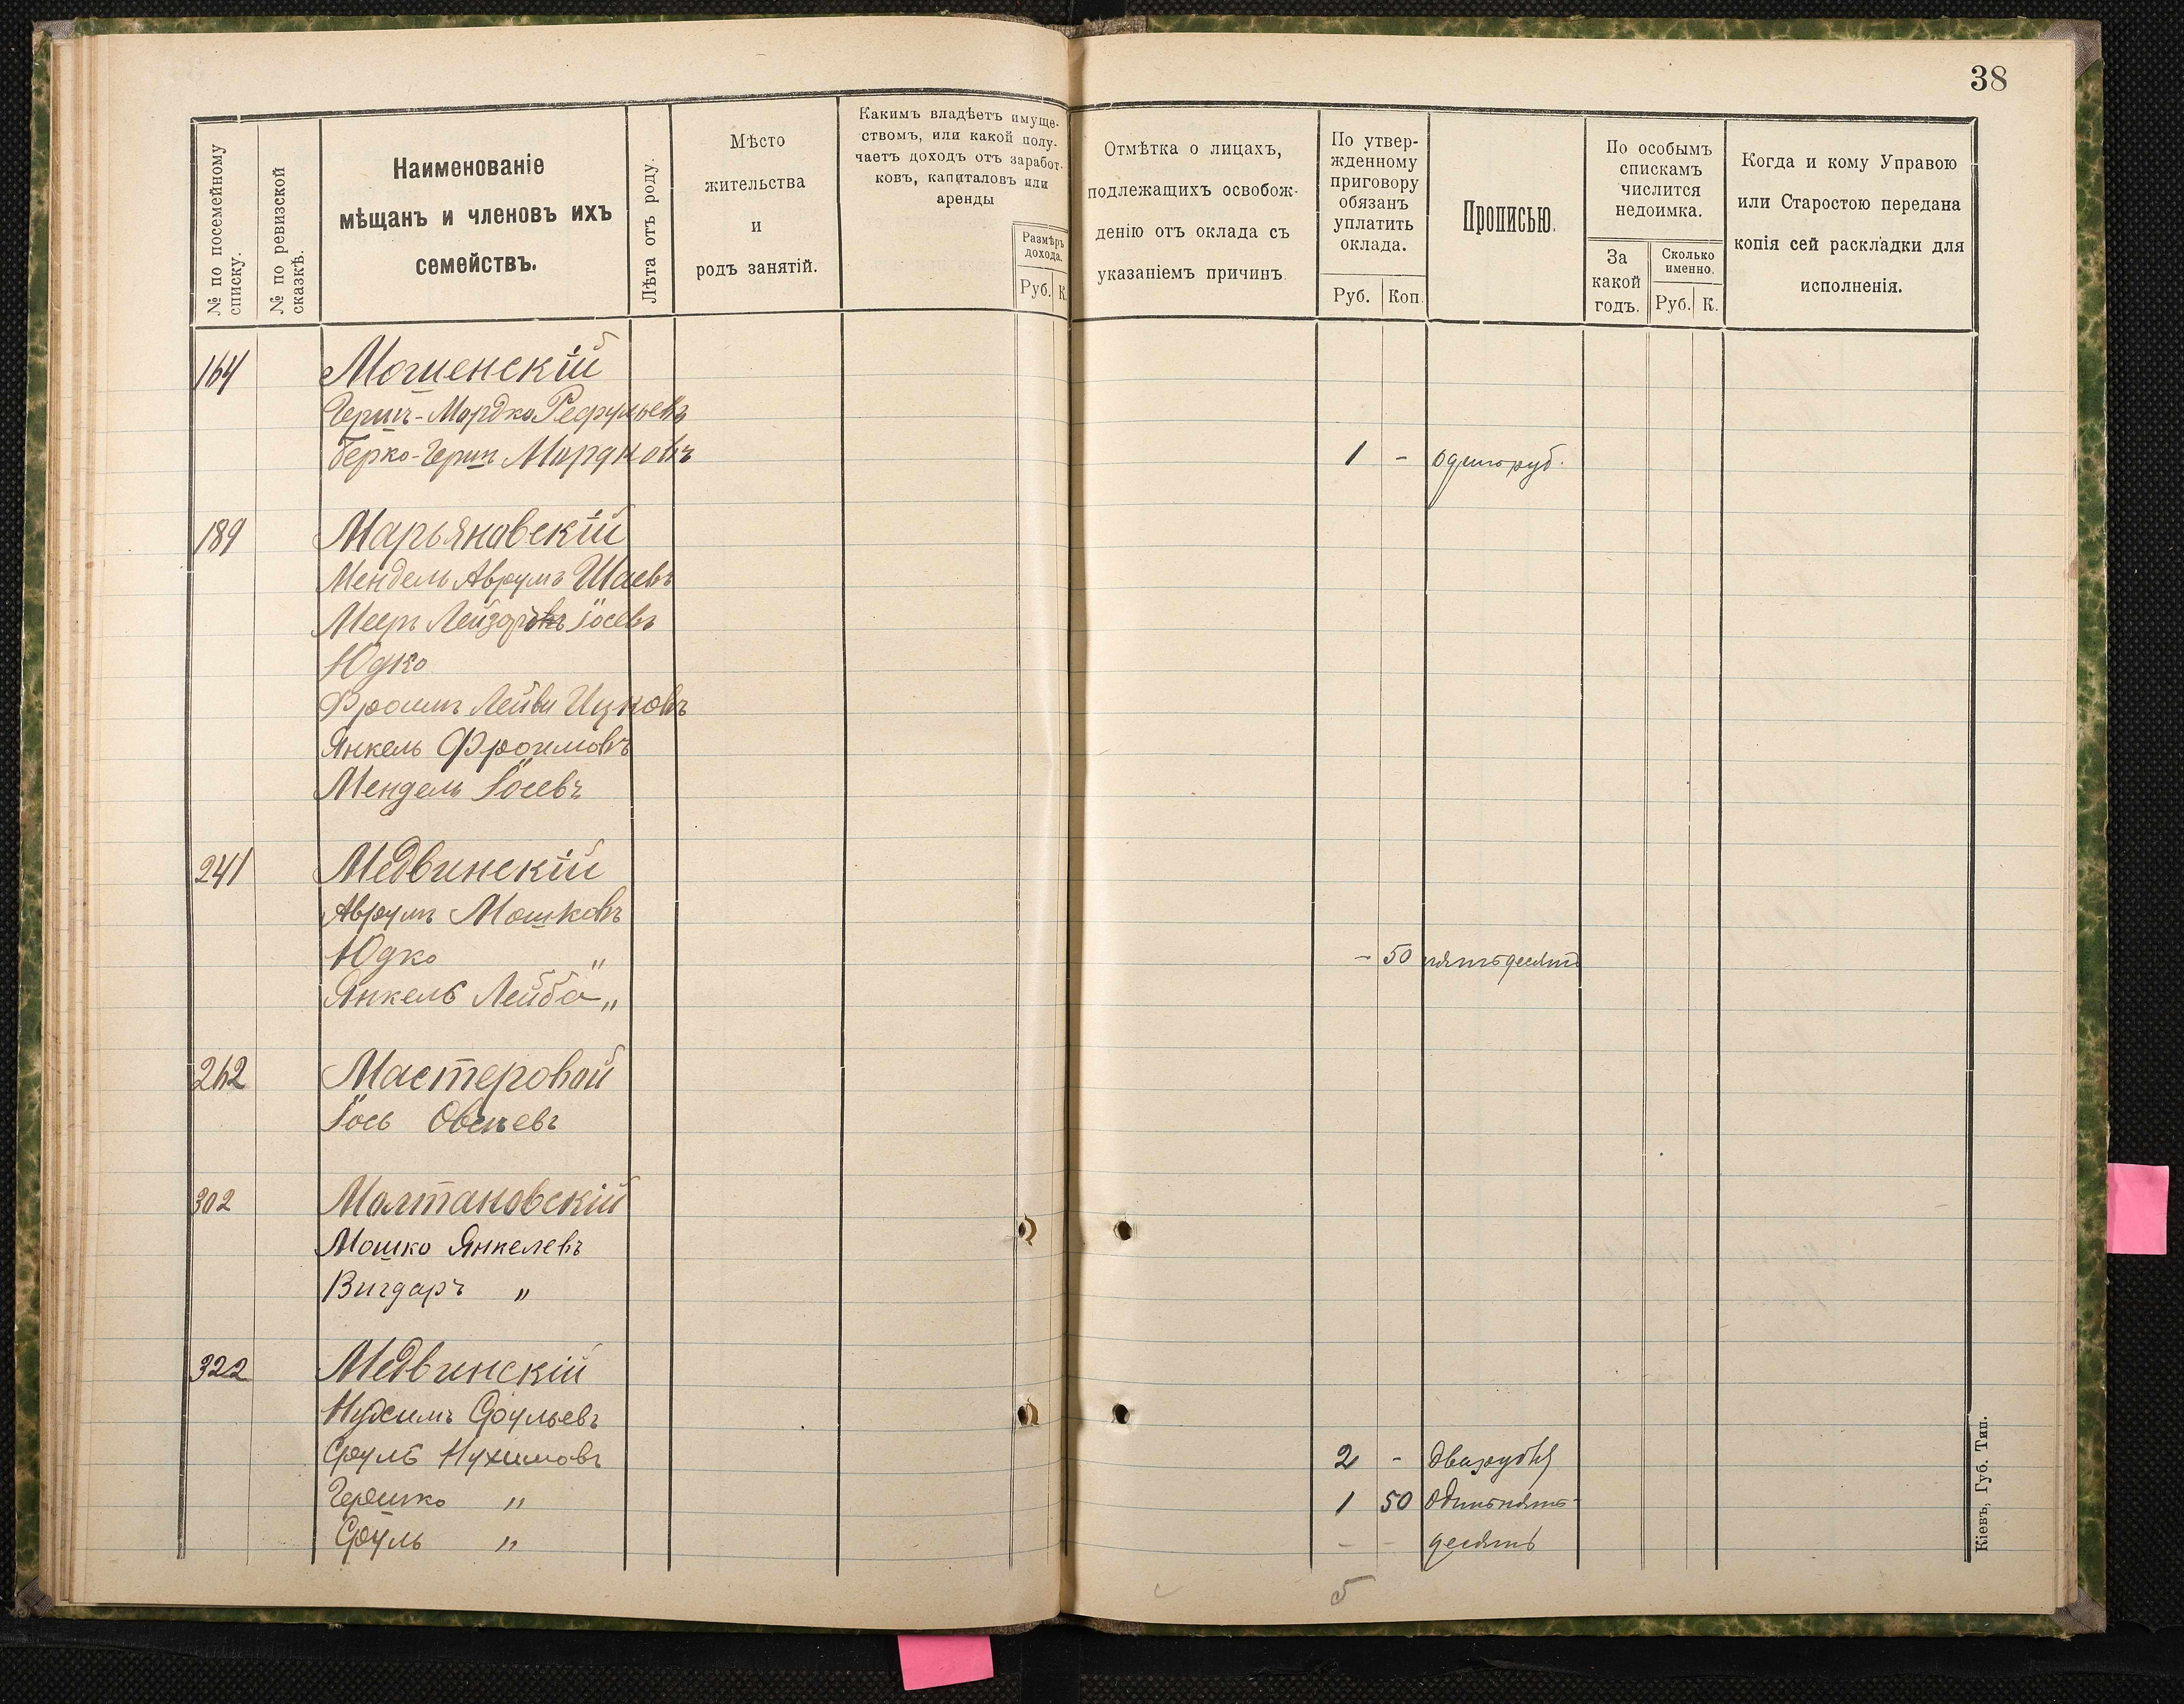 38
№ по посемейному списку.
№ по ревизской сказкѣ.
Наименованіе
мѣщанъ и членовъ ихъ
семействъ.
Лѣта отъ роду.
Мѣсто
жительства
и
родъ занятій.
Какимъ владѣетъ имуще-
ствомъ, или какой полу-
чаетъ доходъ отъ заработ-
ковъ, капиталовъ или
аренды
Размѣръ
дохода.
Руб. К.
Отмѣтка о лицахъ,
подлежащихъ освобож-
денію отъ оклада съ
указаніемъ причинъ.
По утвер-
жденному
приговору
обязанъ
уплатить
оклада.
Руб. Коп.
Прописью.
По особымъ
спискамъ
числится
недоимка.
За
какой
годъ.
Сколько
именно.
Руб. К.
Когда и кому Управою
или Старостою передана
копія сей раскладки для
исполненія.
164 Могиенскій
Герш-Мордко
Берко-Герш Мордковъ 1 - одинъ руб.
189 Марьяновскій
Мендель Аврумъ Шаевъ
Меер Лейзор Іосевъ
Юдко
Фроимъ Лейви Ицковъ
Янкель Фроимовъ
Мендель Іосевъ
241 Медвинскій
Аврумъ Мошковъ
Юдко " - 50 пятьдесятъ
Янкель Лейба "
262 Мастеровой
Іось Овсиевъ
302 Молтановскій
Мошко Янкелевъ
Вигдаръ "
322 Медвинскій
Нухимъ Срульевъ
Сруль Нухимовъ 2 - два рубля
Гершко " 1 50 одинъ пять-
Сруль " - - десятъ
5
Кіевъ, Губ. Тип.